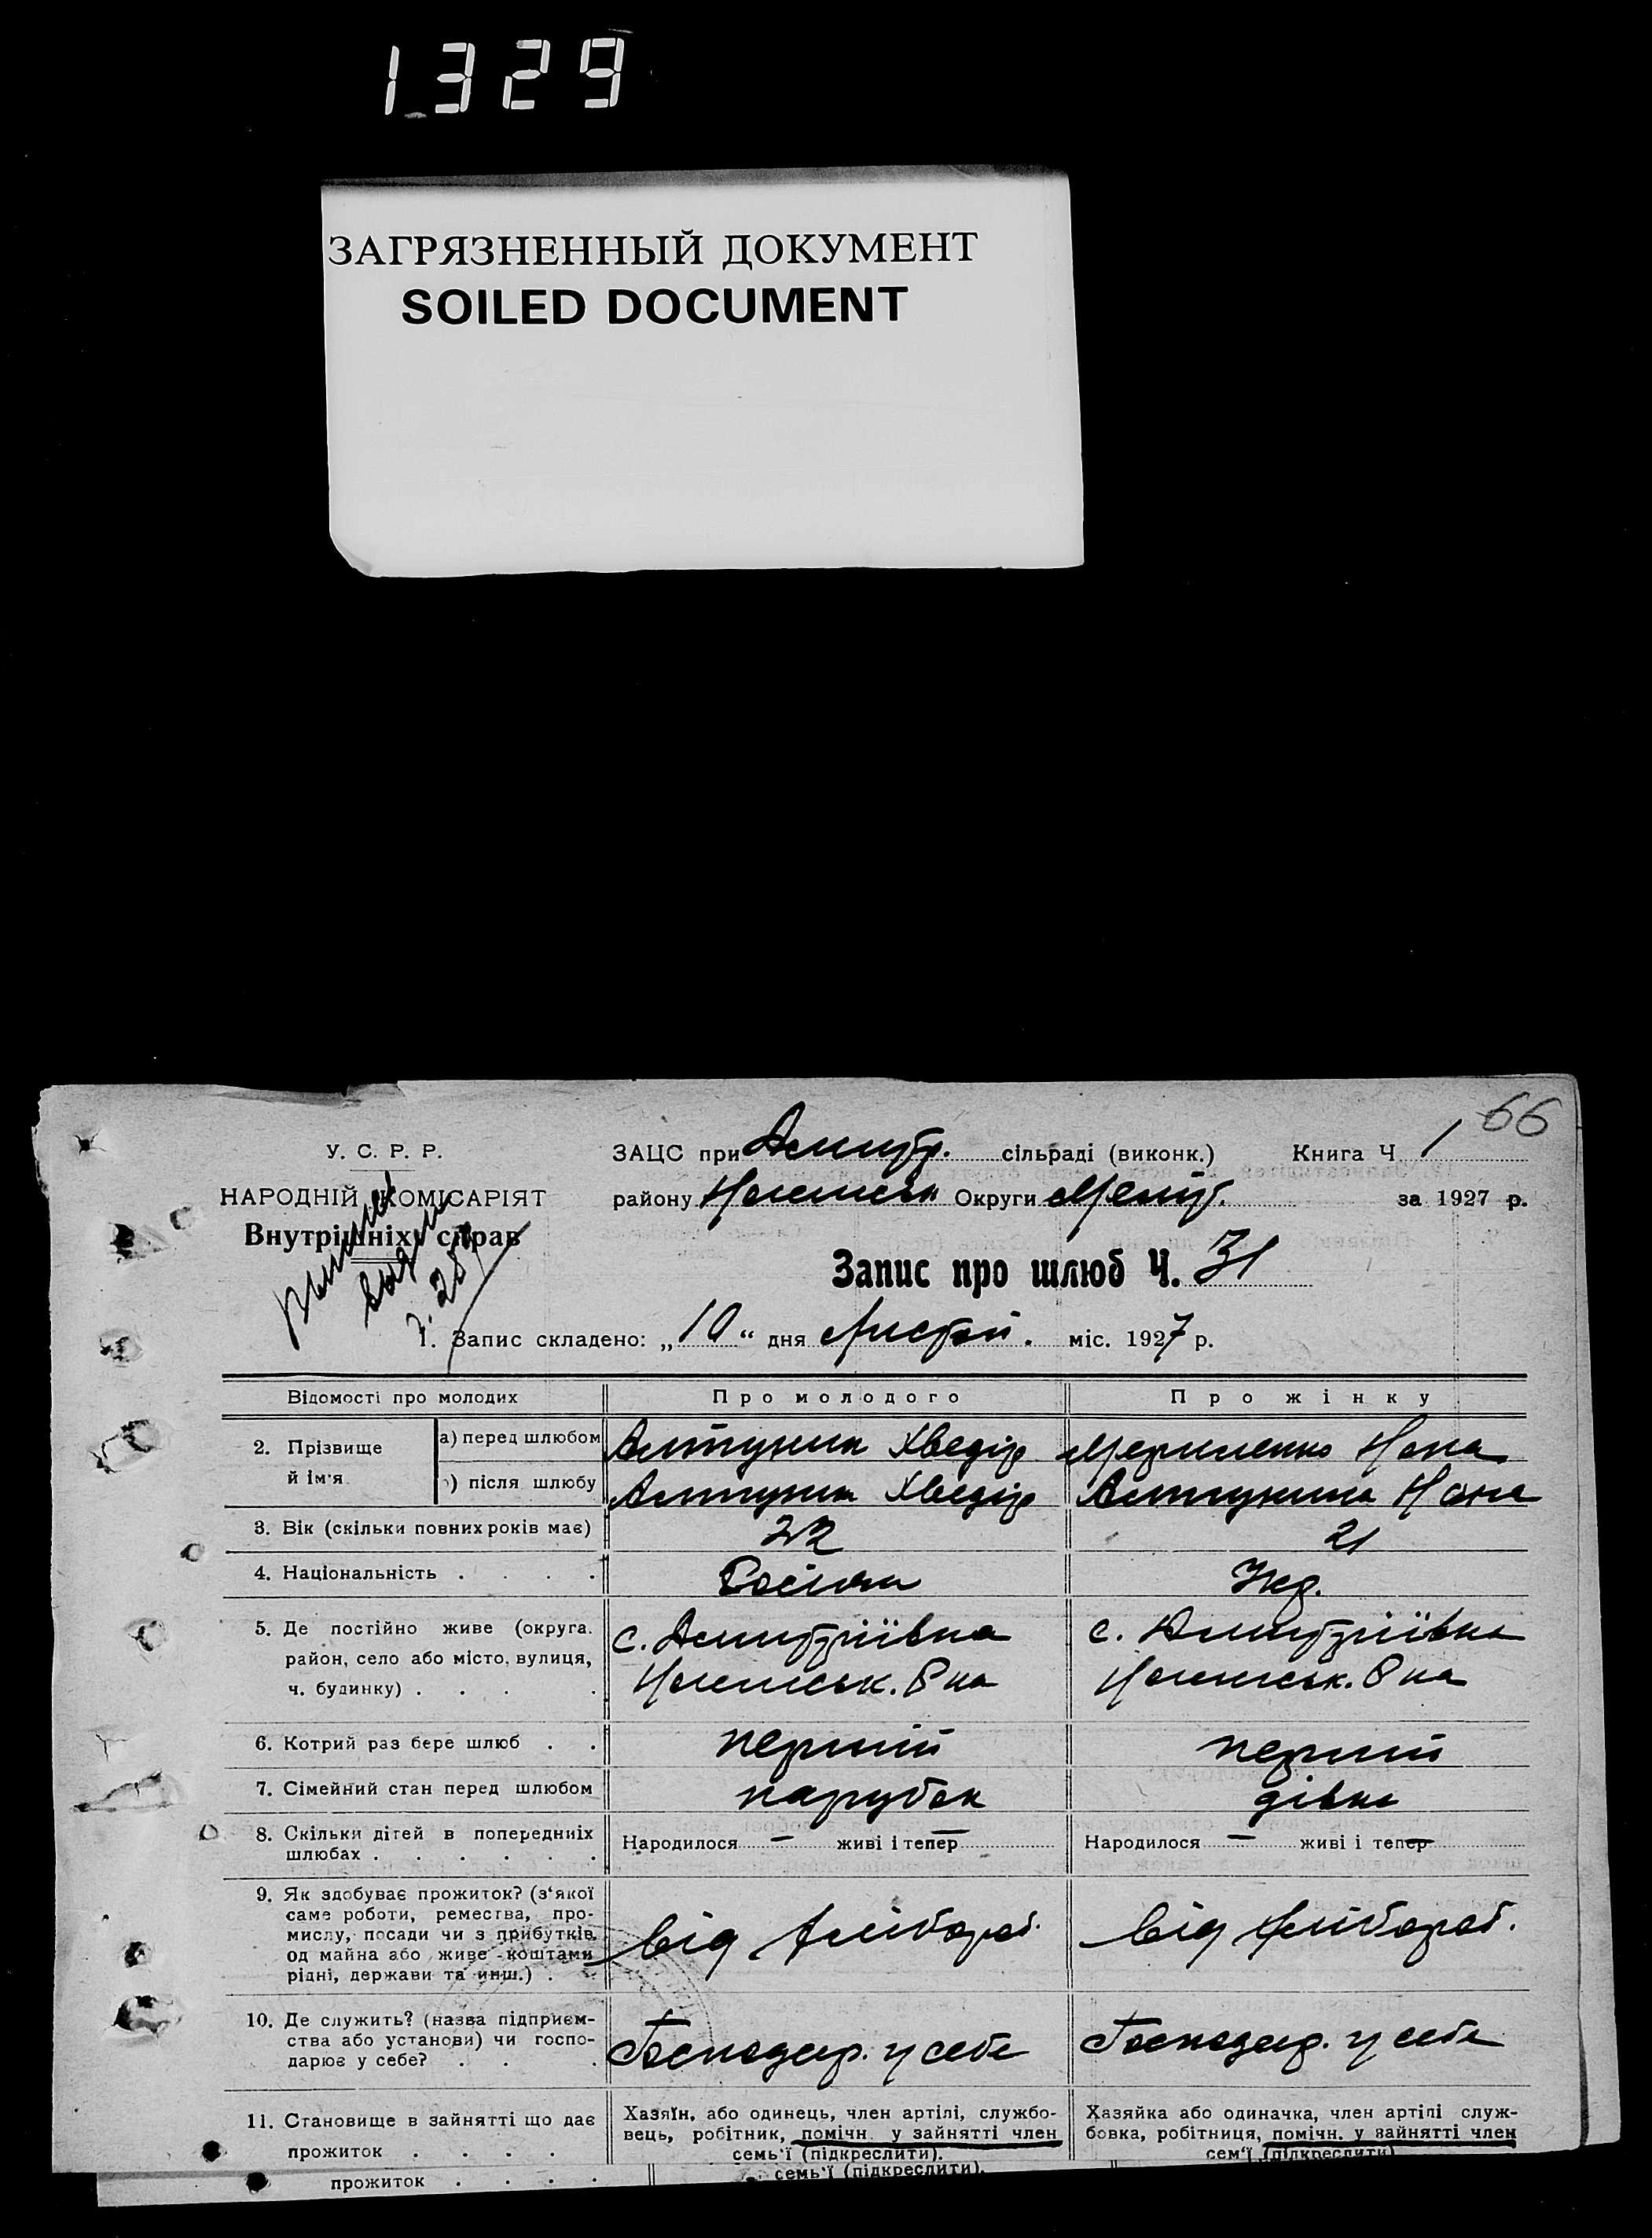 1329
ЗАГРЯЗНЕННЫЙ ДОКУМЕНТ
SOILED DOCUMENT
66
У. С. Р. Р.
НАРОДНІЙ КОМІСАРІЯТ
Внутрішніх справ
ЗАЦС при Дмитр. сільраді (виконк.) Книга Ч 1
району Округи за 1927 р.
Запис про шлюб Ч. 31
1. Запис складено: „10“ дня Листоп. міс. 1927 р.
Відомості про молодих
Про молодого
Про жінку
2. Прізвище й ім'я
а) перед шлюбом Хведір
) після шлюбу Хведір
3. Вік (скільки повних років має) 22 21
4. Національність . . . . Укр.
5. Де постійно живе (округа.
район, село або місто, вулиця,
ч. будинку) . . . .
с. Дмитріївка
с. Дмитріївка
6. Котрий раз бере шлюб . . перший перший
7. Сімейний стан перед шлюбом парубок дівка
8. Скільки дітей в попередніх
шлюбах . . . . . .
Народилося — живі і тепер —
Народилося — живі і тепер —
9. Як здобуває прожиток? (з'якої
саме роботи, ремества, про-
мислу, посади чи з прибутків
од майна або живе коштами
рідні, держави та инш.) .
від хлібороб.
від хлібороб.
10. Де служить? (назва підприєм-
ства або установи) чи госпо-
дарює у себе? . . .
Господар. у себе
Господар. у себе
11. Становище в зайнятті що дає
прожиток . . . .
Хазяїн, або одинець, член артілі, службо-
вець, робітник, помічн. у зайнятті член
семь'ї (підкреслити).
Хазяйка або одиначка, член артілі служ-
бовка, робітниця, помічн. у зайнятті член
сем'ї (підкреслити)
прожиток . . . .
семь'ї (підкреслити).